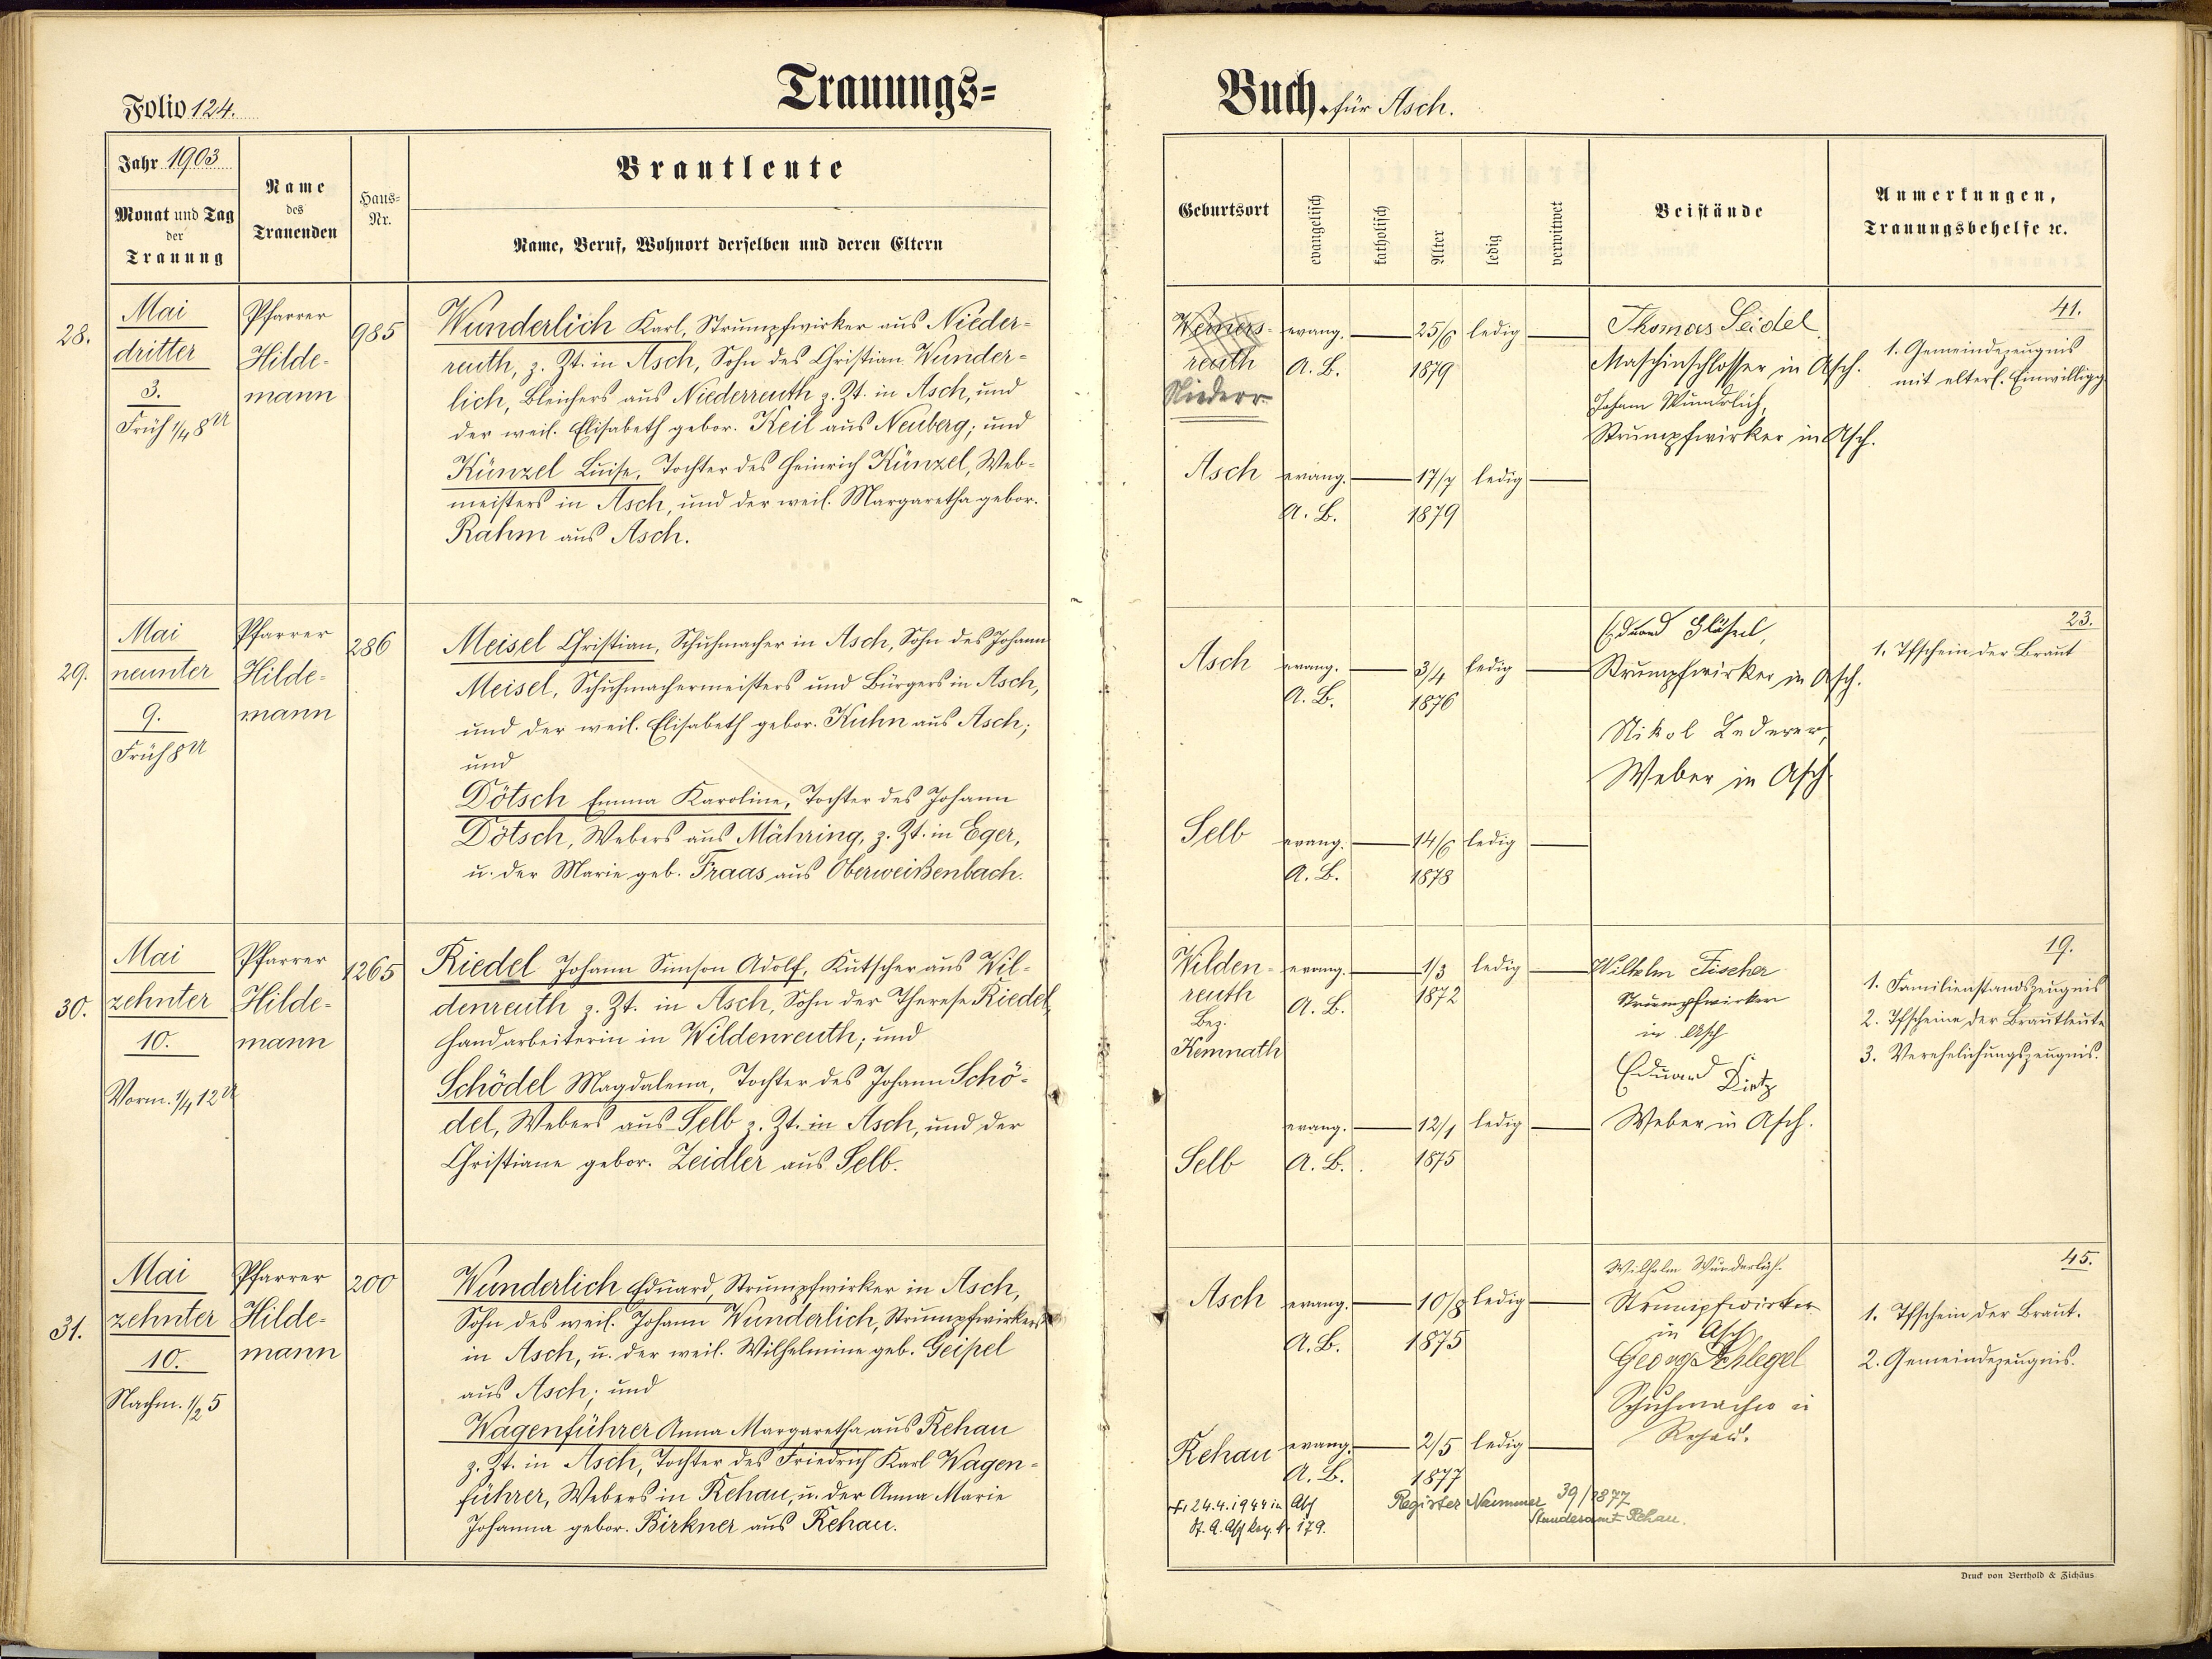 Trauungs=
Folio 124.
Jahr 1903
Monat und Tag
der
Trauung
Name
des
Trauenden
Haus=
Nr.
Brautleute
Name, Beruf, Wohnort derselben und deren Eltern
28.
Mai
dritter
3.
Früh 1/4 8 U
Pfarrer
Hilde-
mann
985
Wunderlich Karl, Strumpfwirker aus Nieder-
reuth, z. Zt. in Asch, Sohn des Christian Wunder-
lich, Bleichers aus Niederreuth z. Zt. in Asch, und
der weil. Elisabeth gebor. Keil aus Neuberg; und
Künzel Luise, Tochter des Heinrich Künzel, Web-
meisters in Asch, und der weil. Margaretha gebor.
Rahm aus Asch.
29.
Mai
neunter
9.
Früh 8 U
Pfarrer
Hilde-
mann
286
Meisel Christian, Schuhmacher in Asch, Sohn des Johann
Meisel, Schuhmachermeisters und Bürgers in Asch,
und der weil. Elisabeth gebor. Kuhn aus Asch;
und
Dötsch Emma Karoline, Tochter des Johann
Dötsch, Webers aus Mähring, z. Zt. in Eger,
u. der Marie geb. Fraas aus Oberweißenbach.
30.
Mai
zehnter
10.
Vorm. 1/4 12 U
Pfarrer
Hilde-
mann
1265
Riedel Johann Simson Adolf, Kutscher aus Wil-
denreuth z. Zt. in Asch, Sohn der Therese Riedel,
Handarbeiterin in Wildenreuth; und
Schödel Magdalena, Tochter des Johann Schö-
del, Webers aus Selb z. Zt. in Asch, und der
Christiane gebor. Zeidler aus Selb.
31.
Mai
zehnter
10.
Nachm. 1/2 5
Pfarrer
Hilde-
mann
200
Wunderlich Eduard, Strumpfwirker in Asch,
Sohn des weil. Johann Wunderlich, Strumpfwirkers
in Asch, u. der weil. Wilhelmine geb. Geipel
aus Asch; und
Wagenführer Anna Margaretha aus Rehau
z. Zt. in Asch, Tochter des Friedrich Karl Wagen-
führer, Webers in Rehau, u. der Anna Marie
Johanna gebor. Birkner aus Rehau.
Buch. für Asch.
Geburtsort
evangelisch
katholisch
Alter
ledig
verwitwet
Beistände
Anmerkungen,
Trauungsbehelfe ꝛc.
Werners-
reuth
Niederr
evang.
A. B.
25/6
1879
ledig
Thomas Seidel
Maschinschlosser in Asch.
Johann Wunderlich,
Strumpfwirker in Asch.
41.
1. Gemeindezeugnis
mit elterl. Einwilligg
Asch
evang.
A. B.
17/7
1879
ledig
Asch
evang.
A. B.
3/4
1876
ledig
Eduard Gläsel,
Strumpfwirker in Asch.
Nikol Lederer,
Weber in Asch
23.
1. Tfschein der Braut
Selb
evang.
A. B.
14/6
1878
ledig
Wilden-
reuth
Bez.
Kemnath
evang.
A. B.
1/3
1872
ledig
Wilhelm Fischer
Strumpfwirker
in Asch
Eduard Dietz
Weber in Asch.
19.
1. Familienstandszeugnis
2. Tfscheine der Brautleute
3. Verehelichungszeugnis.
Selb
evang.
A. B.
12/1
1875
ledig
Asch
evang.
A. B.
10/8
1875
ledig
Wilhelm Wunderlich.
Strumpfwirker
in Asch
Georg Schlegel
Schuhmacher in
Rehau.
45.
1. Tfschein der Braut.
2. Gemeindezeugnis.
Rehau
evang.
A. B.
2/5
1877
ledig
24.4.1944 in Asch
St. A. Asch 179.
Register Nummer 39/1877
Standesamt Rehau.
Druck von Berthold & Zichäus